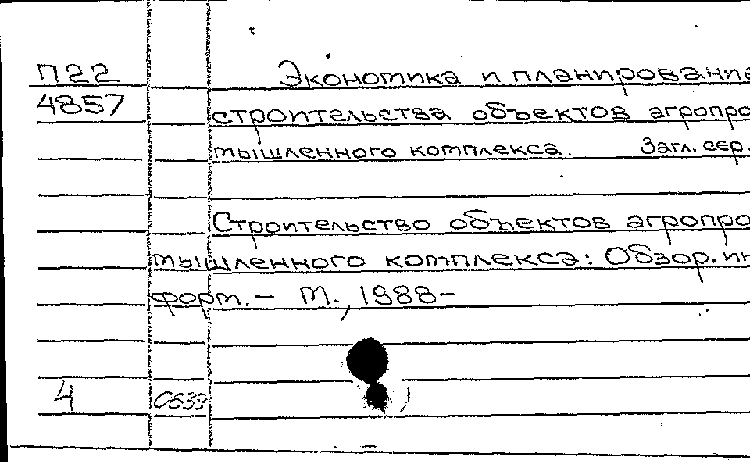 П22 Экономика и планирование
4857 строительства объектов агропро
мышленного комплекса. Загл. сер.
Строительство объектов агропро
мышленного комплекса: Обзор. ин
форм. – М., 1988–
4